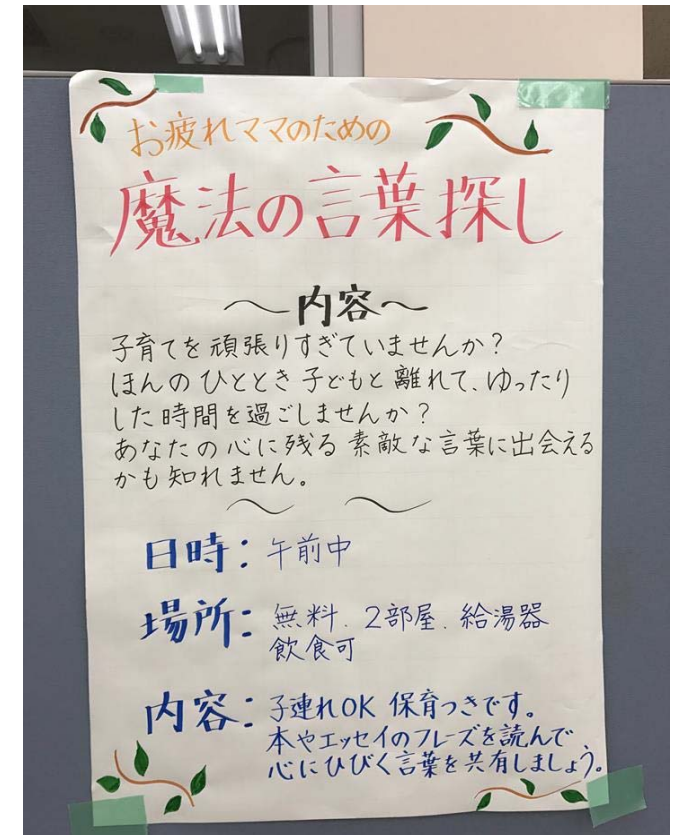 お疲れママのための
魔法の言葉探し
〜内容〜
子育てを頑張りすぎていませんか？
ほんのひととき子どもと離れて、ゆったり
した時間を過ごしませんか？
あなたの心に残る素敵な言葉に出会える
かも知れません。
〜 〜
日時：午前中
場所：無料．2部屋．給湯器
飲食可
内容：子連れOK 保育つきです。
本やエッセイのフレーズを読んで
心にひびく言葉を共有しましょう。